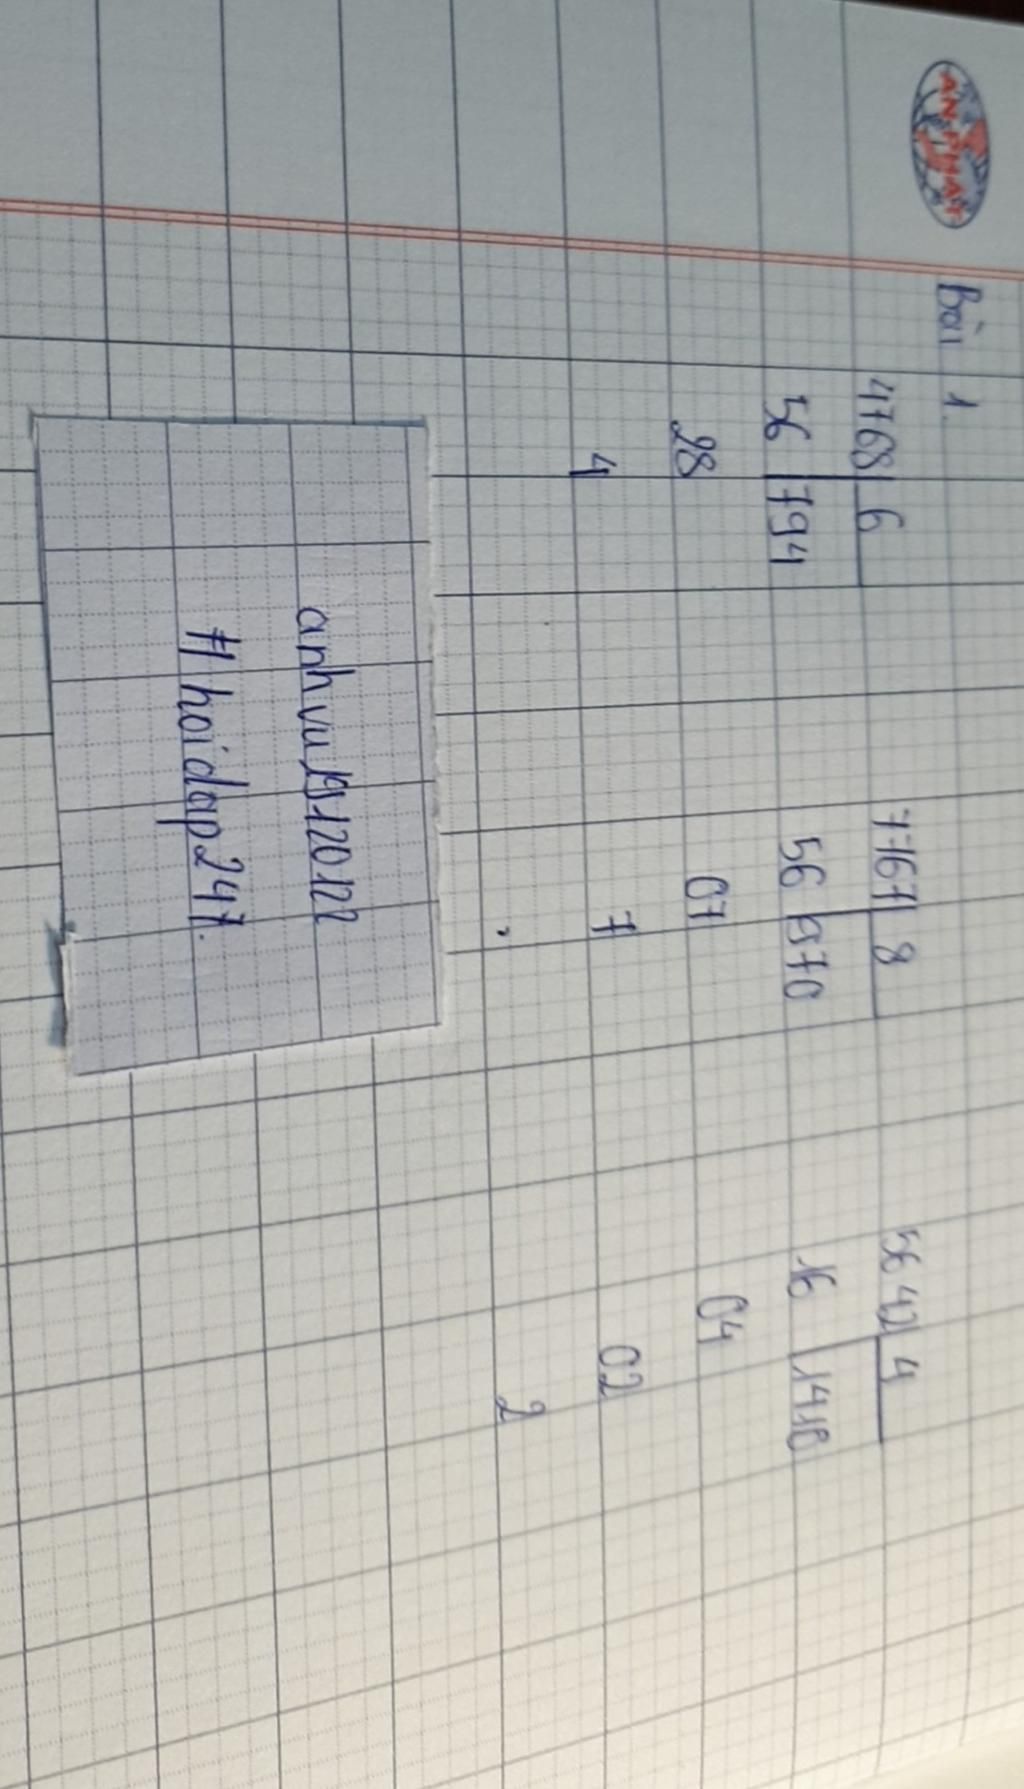 AN PHÁT
Bài 1.
4768 6
56 794
28
4
7767 8
56 970
07
7
5642 4
16 1410
04
02
2
#hoidap247.